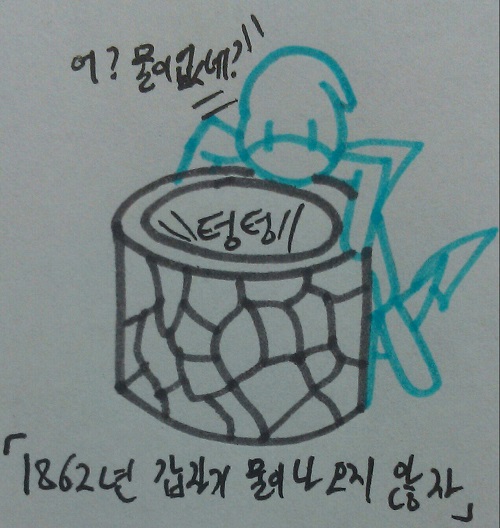 어? 물이없네?
텅텅
「1862년 갑자기 물이 나오지 않자」